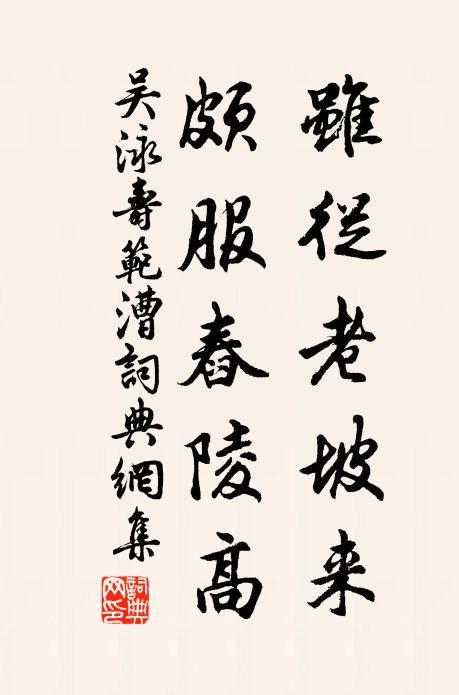 雖從老坡来
頗服舂陵高
吳泳壽範漕詞典網集
詞典网印